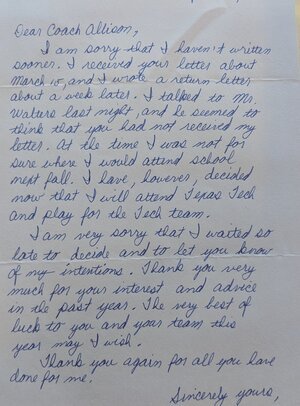 Dear Coach Allison,
I am sorry that I haven't written
sooner. I received your letter about
March 10, and I wrote a return letter
about a week later. I talked to Mr.
Waters last night, and he seemed to
think that you had not received my
letter. At the time I was not for
sure where I would attend school
next fall. I have, however, decided
now that I will attend Texas Tech
and play for the Tech team.
I am very sorry that I waited so
late to decide and to let you know
of my intentions. Thank you very
much for your interest and advice
in the past year. The very best of
luck to you and your team this
year may I wish.
Thank you again for all you have
done for me.
Sincerely yours,